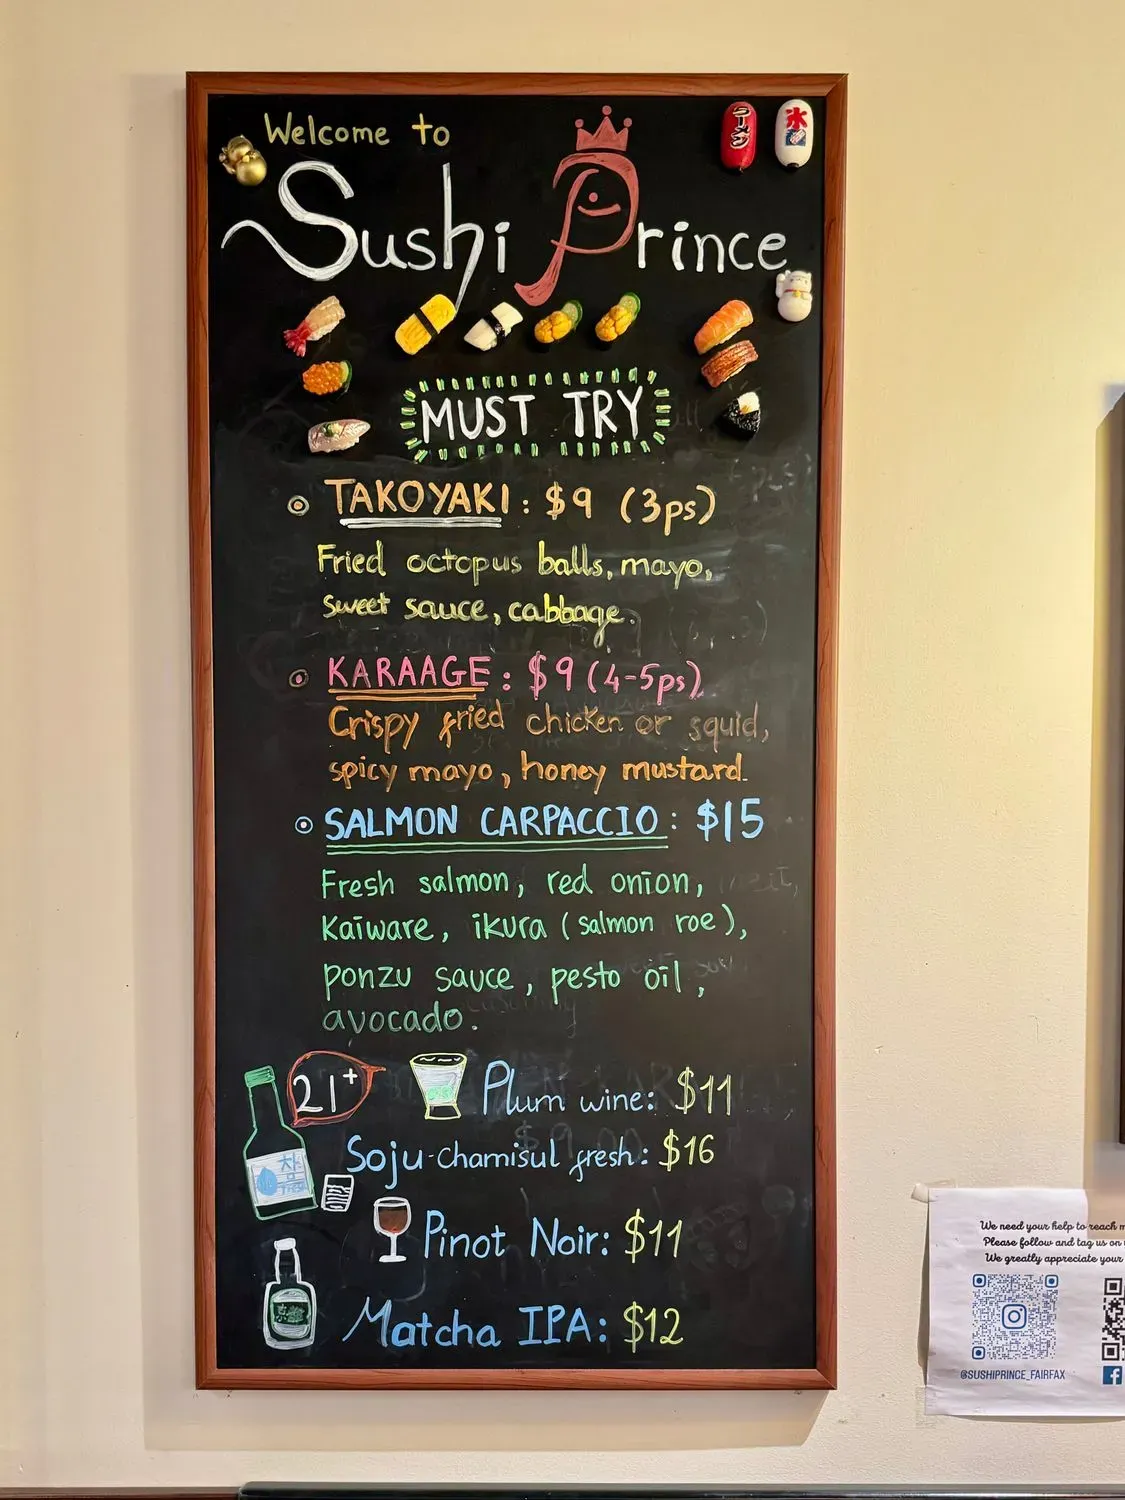 Welcome to
Sushi Prince
ラーメン
氷
MUST TRY
TAKOYAKI: $9 (3ps)
Fried octopus balls, mayo,
sweet sauce, cabbage.
KARAAGE: $9 (4-5ps)
Crispy fried chicken or squid,
spicy mayo, honey mustard.
SALMON CARPACCIO: $15
Fresh salmon, red onion,
Kaiware, ikura (salmon roe),
ponzu sauce, pesto oil,
avocado.
21+
Plum wine: $11
Soju-Chamisul fresh: $16
Pinot Noir: $11
Matcha IPA: $12
We need your help to reach
Please follow and tag us on
We greatly appreciate your
@SUSHIPRINCE_FAIRFAX